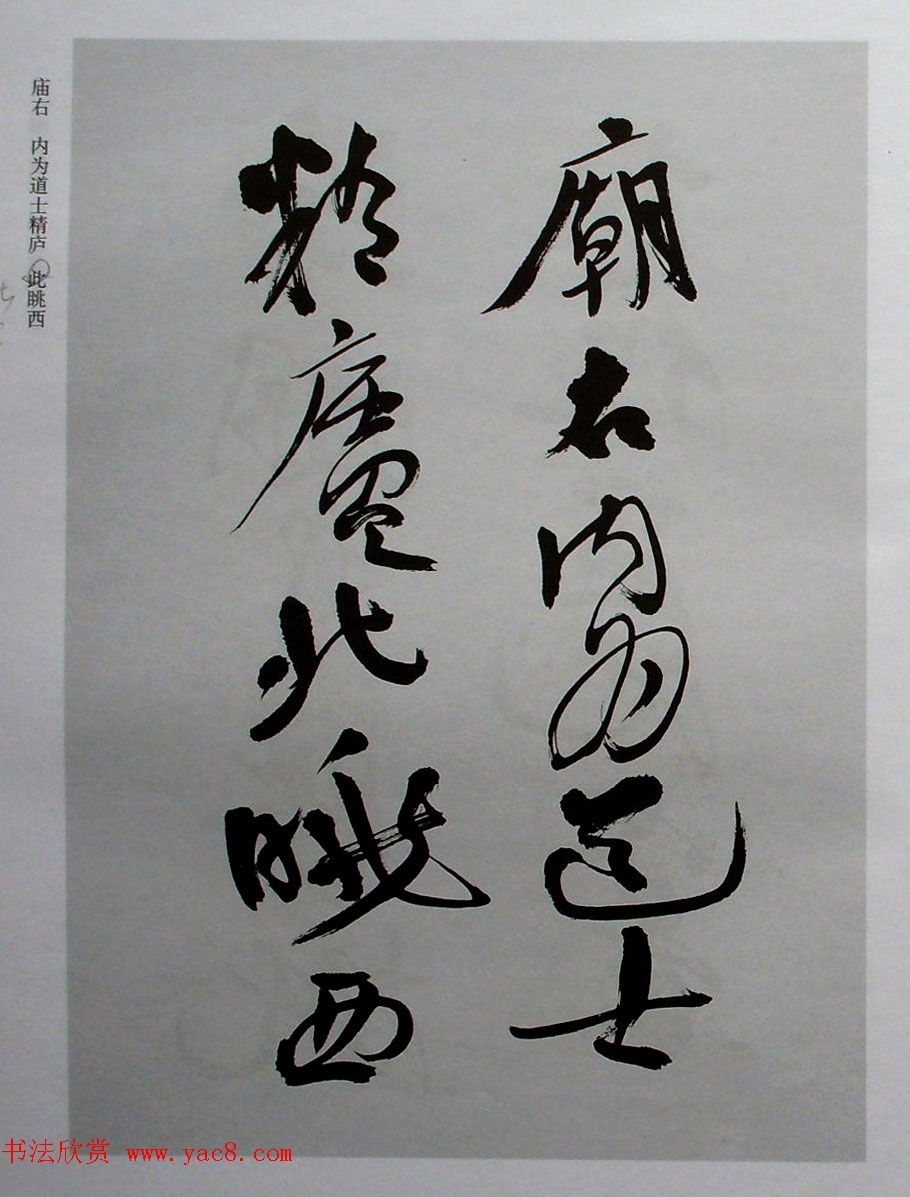 廟右内為道士
精廬北眺西
庙右 内为道士精庐 此眺西
书法欣赏 www.yac8.com